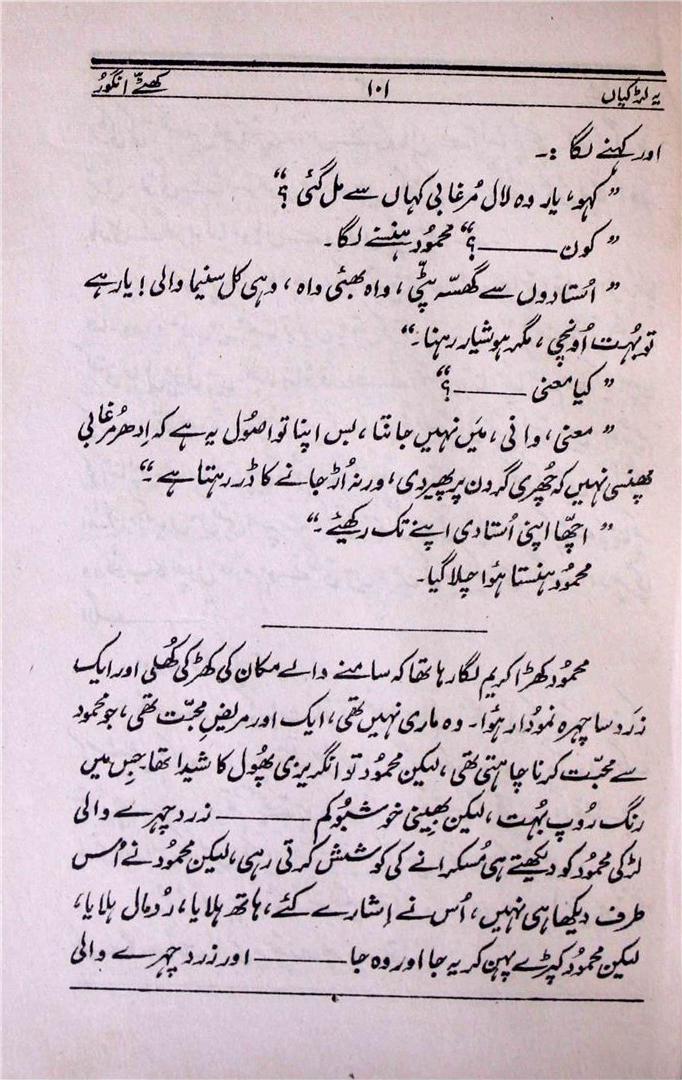 یہ لڑکیاں ۱۰۱ کھٹّے انگور
اور کہنے لگا :۔
” کہو، یار وہ لال مُرغابی کہاں سے مل گئی ؟“
” کون ـــــــ؟“ محمُود ہنسنے لگا۔
” اُستادوں سے گھسّہ پٹّی، واہ بھئی واہ، وہی کل سنیما والی! یار ہے
تو بہُت اُونچی، مگر ہوشیار رہنا۔“
” کیا معنی ـــــــ؟“
” معنی، وانی، مَیں نہیں جانتا، بس اپنا تو اصُول یہ ہے کہ اِدھر مُرغابی
پھنسی نہیں کہ چُھری گردن پر پھیر دی، ورنہ اُڑ جانے کا ڈر رہتا ہے۔“
” اچھّا اپنی اُستادی اپنے تک رکھیئے۔“
محمُود ہنستا ہوُا چلا گیا۔
محمُود کھڑا کریم لگا رہا تھا کہ سامنے والے مکان کی کھڑکی کھُلی اور ایک
زرد سا چہرہ نمُودار ہوُا۔ وہ ماری نہیں تھی، ایک اور مریضِ محبّت تھی، جو محمُود
سے محبّت کرنا چاہتی تھی، لیکن محمُود تو انگریزی پھُول کا شیدا تھا۔ جِس میں
رنگ رُوپ بہُت، لیکن بھینی خوشبُو کم ـــــــ زرد چہرے والی
لڑکی محمُود کو دیکھتے ہی مُسکرانے کی کوشش کرتی رہی، لیکن محمُود نے اُس
طرف دیکھا ہی نہیں، اُس نے اِشارے کئے، ہاتھ ہلایا، رُومال ہلایا،
لیکن محمُود کپڑے پہن کر یہ جا اور وہ جا ـــــــ اور زرد چہرے والی